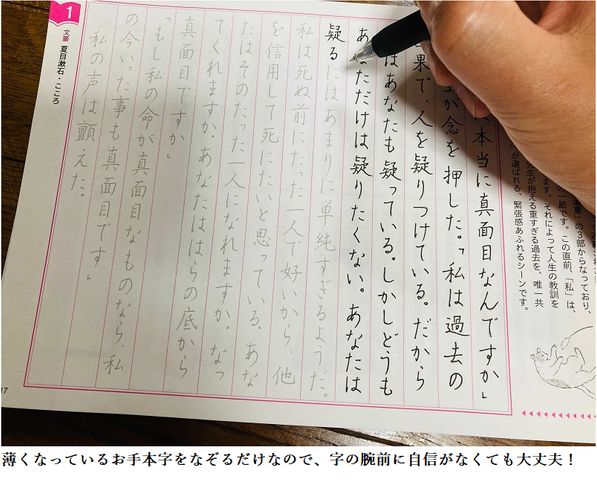 書」の3部からなっており、
の一節です。この直前、「私」は、
ます。それによって人生の教訓を
生が抱える重すぎる過去を、唯一共
が選ばれる、緊張感あふれるシーンです。
は本当に真面目なんですか」
が念を押した。「私は過去の
果で、人を疑りつけている。だから
はあなたも疑っている。しかしどうも
あなただけは疑りたくない。あなたは
疑るにはあまりに単純すぎるようだ。
私は死ぬ前にたった一人で好いから、他
を信用して死にたいと思っている。あな
たはそのたった一人になれますか。なっ
てくれますか。あなたははらの底から
真面目ですか」
「もし私の命が真面目なものなら、私
の今いった事も真面目です」
私の声は顫えた。
1
文豪 夏目漱石・こころ
薄くなっているお手本字をなぞるだけなので、字の腕前に自信がなくても大丈夫！